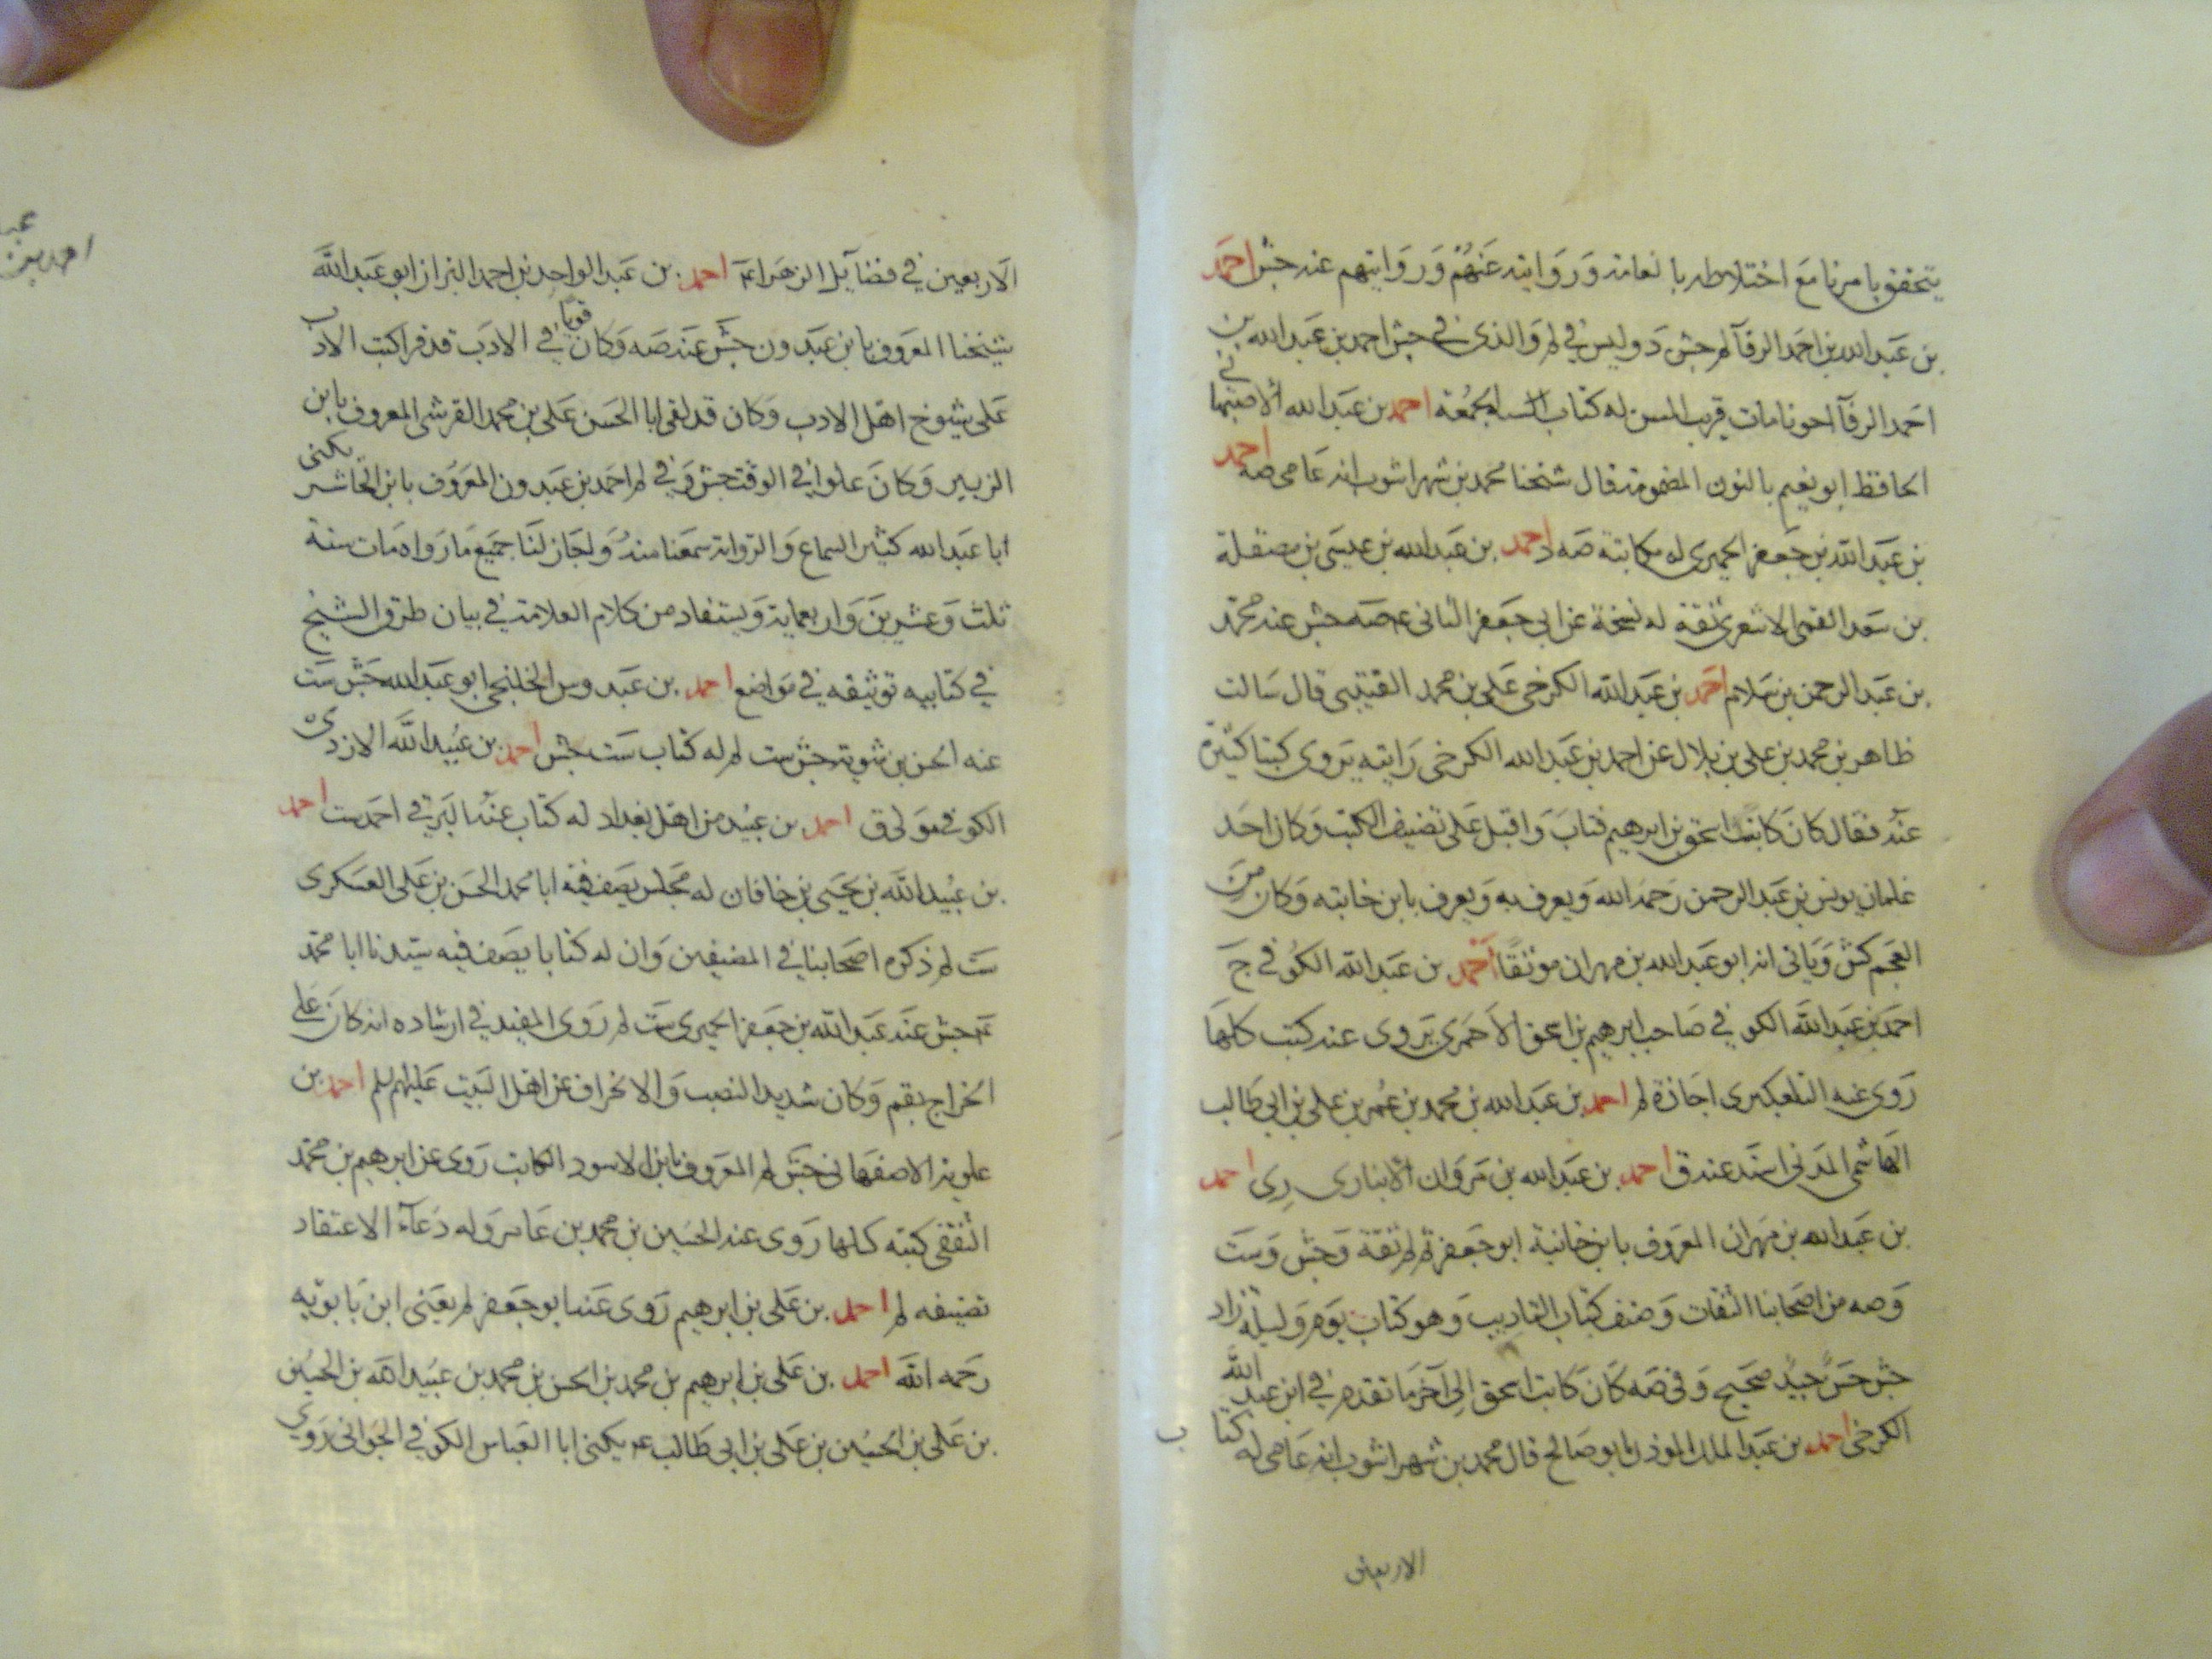 يتحقق بامرنا مع اختلاطه بالعامة وروايته عنهم وروايتهم عنه جش احمد
بن عبد الله بن احمد الرفآ لم جش د وليس في لم والذي في جش احمد بن عبد الله بن
احمد الرفآ اخونا مات قريب السن له كتاب الجمعة احمد بن عبد الله الاصبهاني
الحافظ ابو نعيم بالنون المضمومة قال شيخنا محمد بن شهراشوب انه عامي صه احمد
بن عبد الله بن جعفر الحميري له مكاتبة صه د احمد بن عبد الله بن عيسى بن مصقلة
بن سعد القمي الاشعري ثقة له نسخة عن ابي جعفر الثاني ع صه جش عنه محمد
بن عبد الرحمن بن سلام احمد بن عبد الله الكرخي علي بن محمد القتيبي قال سالت
طاهر بن محمد بن علي بن بلال عن احمد بن عبد الله الكرخي رايته يروي كتبا كثيرة
عنه فقال كان كاتب اسحق بن ابرهيم فتاب واقبل على تصنيف الكتب وكان احد
غلمان يونس بن عبد الرحمن رحمه الله ويعرف به ويعرف بابن خانبه وكان من
العجم كش وياتي انه ابو عبد الله بن مهران موثقا احمد بن عبد الله الكوفي ج
احمد بن عبد الله الكوفي صاحب ابرهيم بن اسحق الاحمري يروي عنه كتب كلها
روى عنه التلعكبري اجازة لم احمد بن عبد الله بن محمد بن عمر بن علي بن ابي طالب
الهاشمي المدني اسند عنه ق احمد بن عبد الله بن مروان الانباري دي احمد
بن عبد الله بن مهران المعروف بابن خانبة ابو جعفر لم ثقة وجش وست
وصه من اصحابنا الثقات وصنف كتاب التاديب وهو كتاب يوم وليلة زاد
جش حسن جيد صحيح وفي صه كان كاتب اسحق الى آخر ما تقدم في ابن عبد الله
الكرخي احمد بن عبد الملك الموذن ابو صالح قال محمد بن شهراشوب انه عامي له كتاب
الاربعين
الاربعين في فضآيل الزهراء ع احمد بن عبد الواحد بن احمد البزاز ابو عبد الله
شيخنا المعروف بابن عبدون جش عنه صه وكان قويا في الادب قد قرا كتب الادب
على شيوخ اهل الادب وكان قد لقى ابا الحسن علي بن محمد القرشي المعروف بابن
الزبير وكان علوا في الوقت جش وفي لم احمد بن عبدون المعروف بابن الحاشر يكنى
ابا عبد الله كثير السماع والرواية سمعنا منه واجاز لنا جميع ما رواه مات سنة
ثلث وعشرين واربعماية ويستفاد من كلام العلامة في بيان طرق الشيخ
في كتابيه توثيقه في مواضع احمد بن عبدوس الخلنجي ابو عبد الله جش ست
عنه الحسن بن متوية جش ست لم له كتاب ست جش احمد بن عبيد الله الازدي
الكوفي مولى ق احمد بن عبيد من اهل بغداد له كتاب عنه البرقي احمد ست احمد
بن عبيد الله بن يحيى بن خاقان له مجلس يصف فيه ابا محمد الحسن بن علي العسكري
ست لم ذكره اصحابنا في المصنفين وان له كتابا يصف فيه سيدنا ابا محمد
ع جش عنه عبد الله بن جعفر الحميري ست لم روى المفيد في ارشاده انه كان على
الخراج بقم وكان شديد النصب والانحراف عن اهل البيت عليهم احمد بن
علويه الاصفهاني جش لم المعروف بابن الاسود الكاتب روى عن ابرهيم بن محمد
الثقفي كتبه كلها روى عنه الحسين بن محمد بن عامر وله دعآء الاعتقاد
تصنيفه لم احمد بن علي بن ابرهيم روى عنه ابو جعفر لم يعني ابن بابويه
رحمه الله احمد بن علي بن ابرهيم بن محمد بن الحسن بن محمد بن عبيد الله بن الحسين
بن علي بن الحسين بن علي بن ابي طالب ع يكنى ابا العباس الكوفي الجواني روى